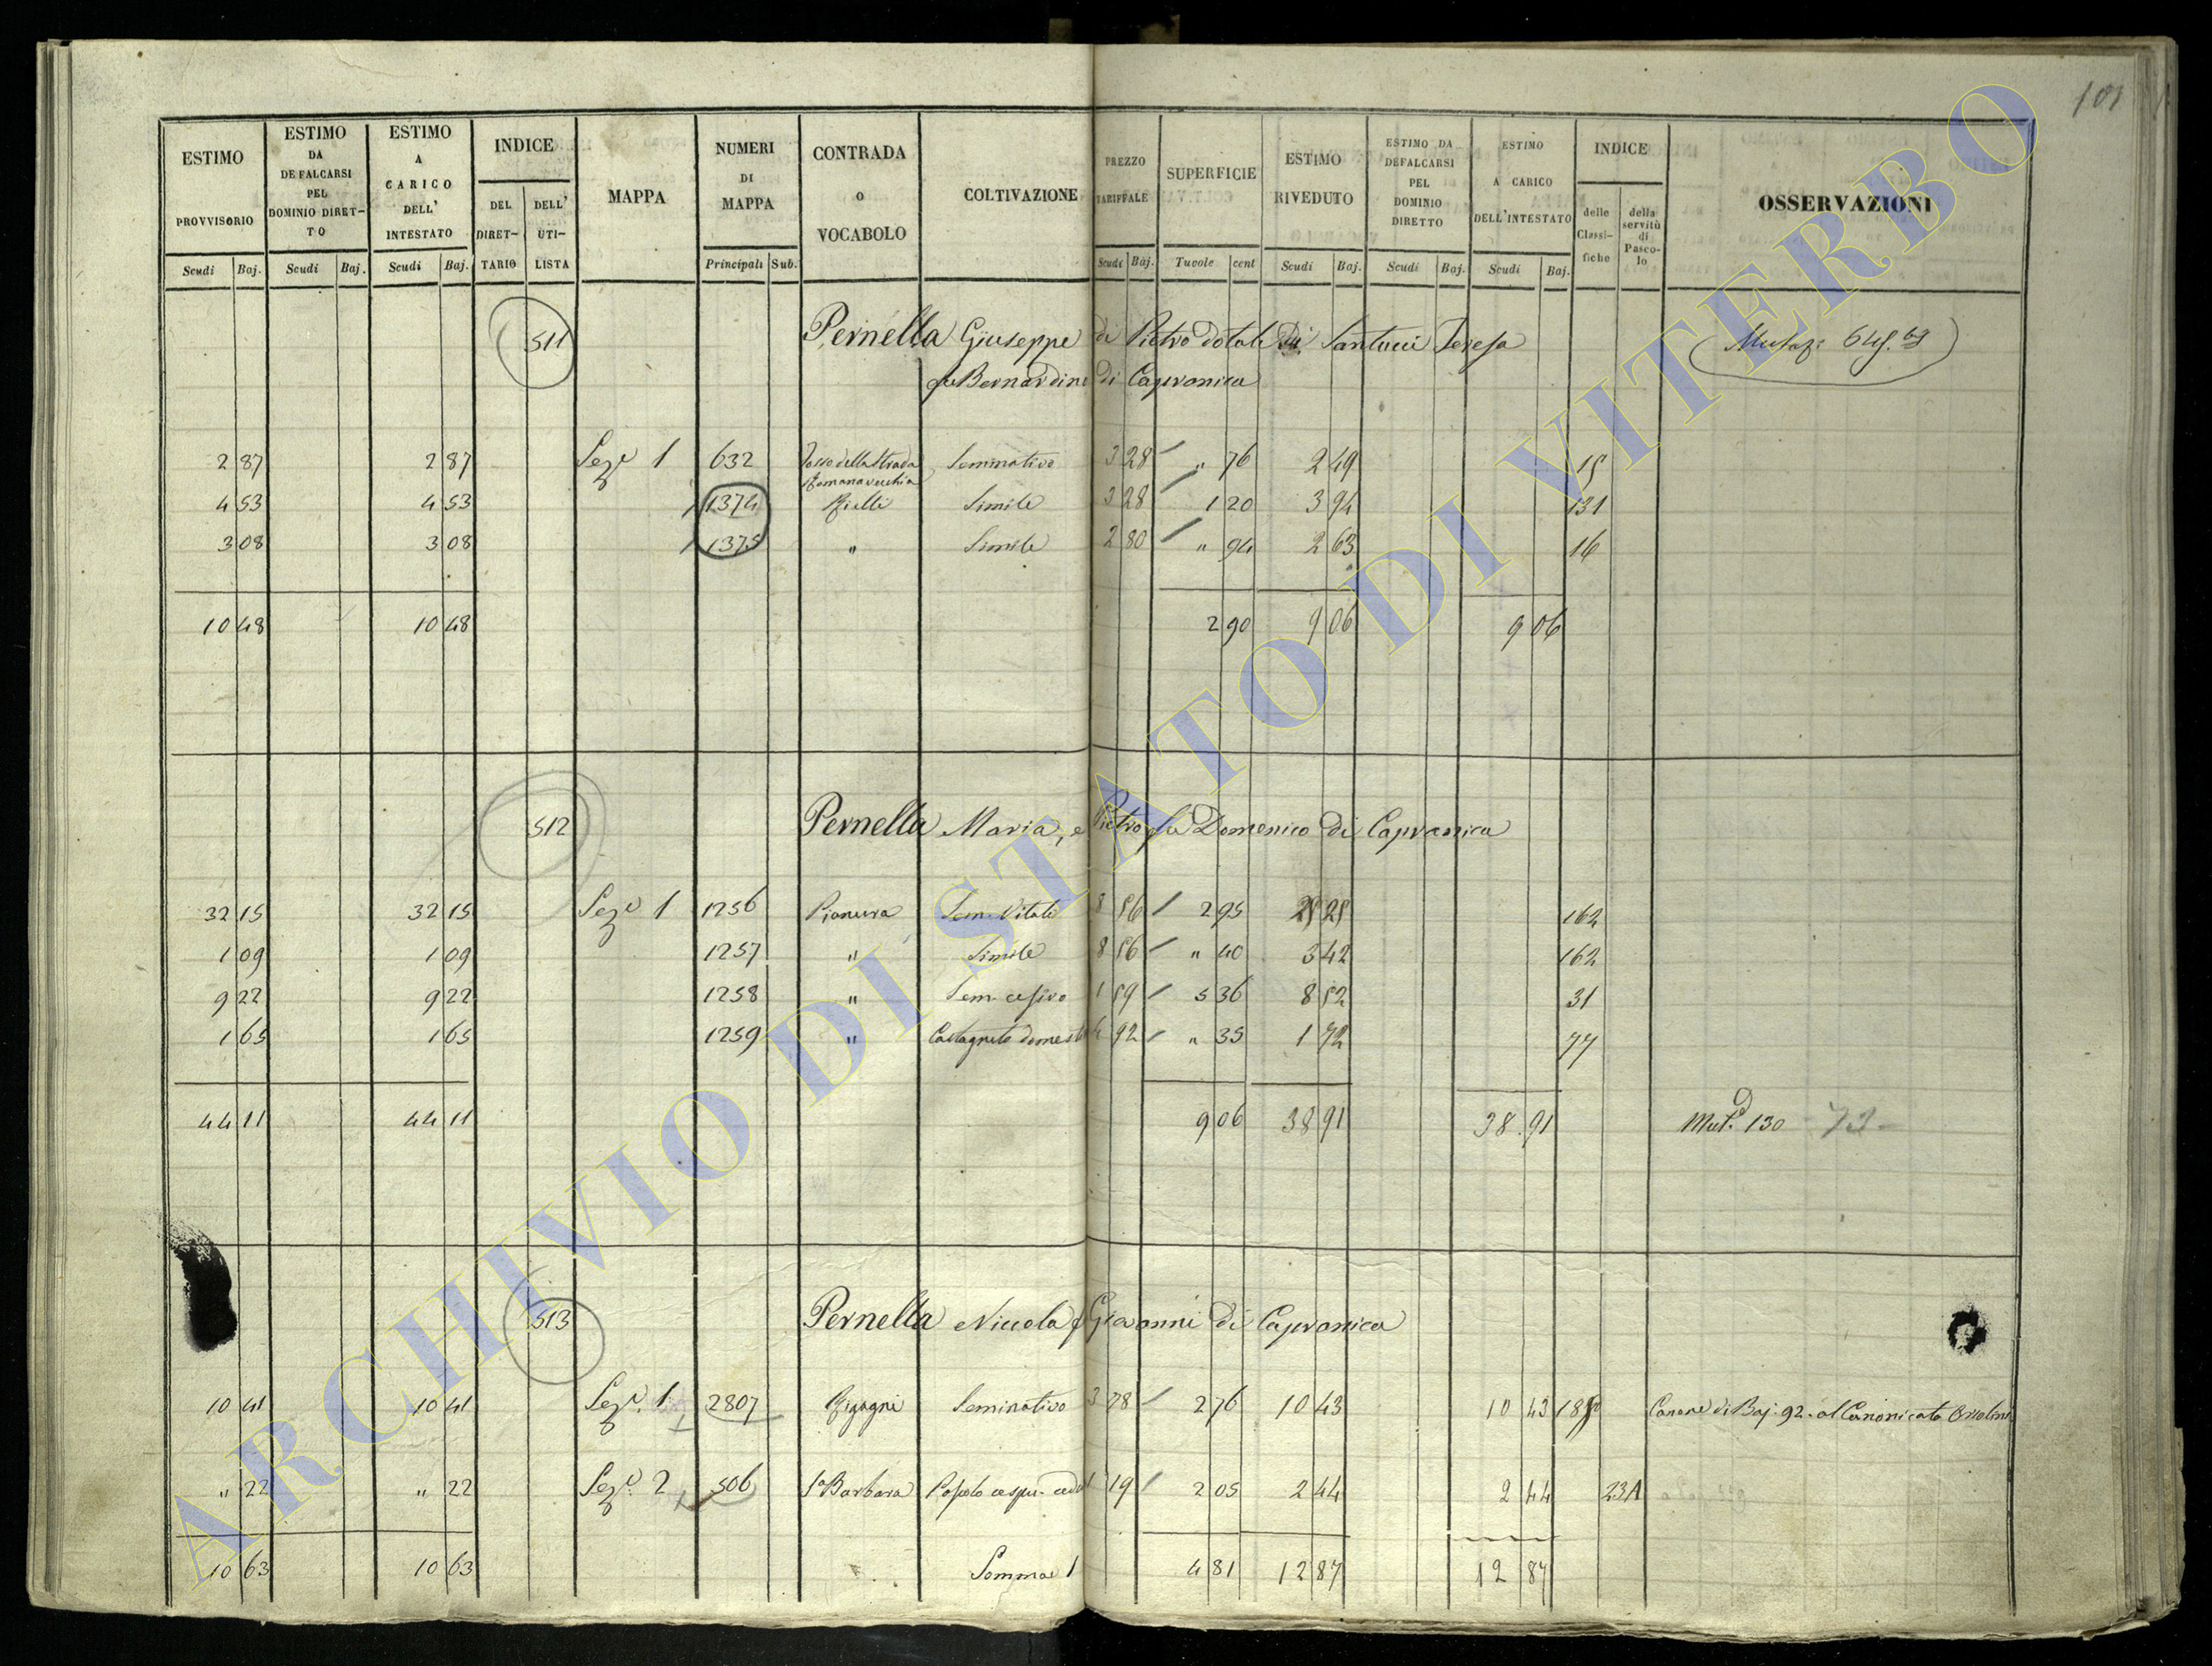 101
ESTIMO PROVVISORIO | ESTIMO DA DEFALCARSI PEL DOMINIO DIRETTO | ESTIMO A CARICO DELL' INTESTATO | INDICE | MAPPA | NUMERI DI MAPPA | CONTRADA o VOCABOLO | COLTIVAZIONE | PREZZO TARIFFALE | SUPERFICIE | ESTIMO RIVEDUTO | ESTIMO DA DEFALCARSI PEL DOMINIO DIRETTO | ESTIMO A CARICO DELL'INTESTATO | INDICE | OSSERVAZIONI
DEL DIRET-TARIO | DELL' UTI-LISTA | delle Classi-fiche | della servitù di Pasco-lo
Scudi | Baj. | Scudi | Baj. | Scudi | Baj. | Principali | Sub. | Scudi | Baj. | Tavole | cent | Scudi | Baj. | Scudi | Baj. | Scudi | Baj.
511 Pernella Giuseppe di Pietro dotale di Santucci Teresa
fu Bernardino di Capranica
2 87 | 2 87 | Seze 1 | 632 | Fosso della Strada Romana vecchia | Seminativo | 3 28 | " 76 | 2 49 | 15
4 53 | 4 53 | 1374 | Simile | 3 28 | 1 20 | 3 94 | 131
3 08 | 3 08 | 1375 | " | Simile | 2 80 | " 94 | 2 63 | 16
10 48 | 10 48 | 2 90 | 9 06 | 9 06
512 Pernella Maria, e Pietro fu Domenico di Capranica
32 15 | 32 15 | Seze 1 | 1256 | Pianura | Sem. Vitato | 8 56 | 2 95 | 25 25 | 162
1 09 | 1 09 | 1257 | " | Simile | 8 56 | " 40 | 3 42 | 162
9 22 | 9 22 | 1258 | " | Sem. cesivo | 1 59 | 5 36 | 8 52 | 31
1 65 | 1 65 | 1259 | " | Castagneto domest | 4 92 | " 35 | 1 72 | 77
44 11 | 44 11 | 9 06 | 38 91 | 38 91 | Mut. 130 73
513 Pernella Niccola Giovanni di Capranica
10 41 | 10 41 | Seze 1 | 2807 | Seminativo | 3 78 | 2 76 | 10 43 | 10 43 | Canone di Baj. 92. al Canonicato
" 22 | " 22 | Seze 2 | 506 | Sa Barbara | Pascolo cespu. | 1 19 | 2 05 | 2 44 | 2 44 | 23A
10 63 | 10 63 | Somma | 4 81 | 12 87 | 12 87
ARCHIVIO DI STATO DI VITERBO